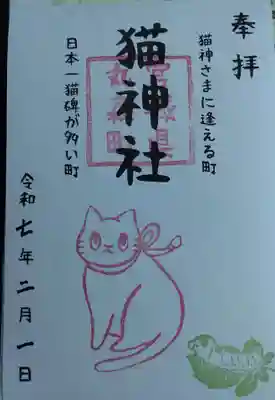 奉拝
猫神さまに逢える町
猫神社
日本一猫碑が多い町
令和七年二月一日
宮城県
丸森町